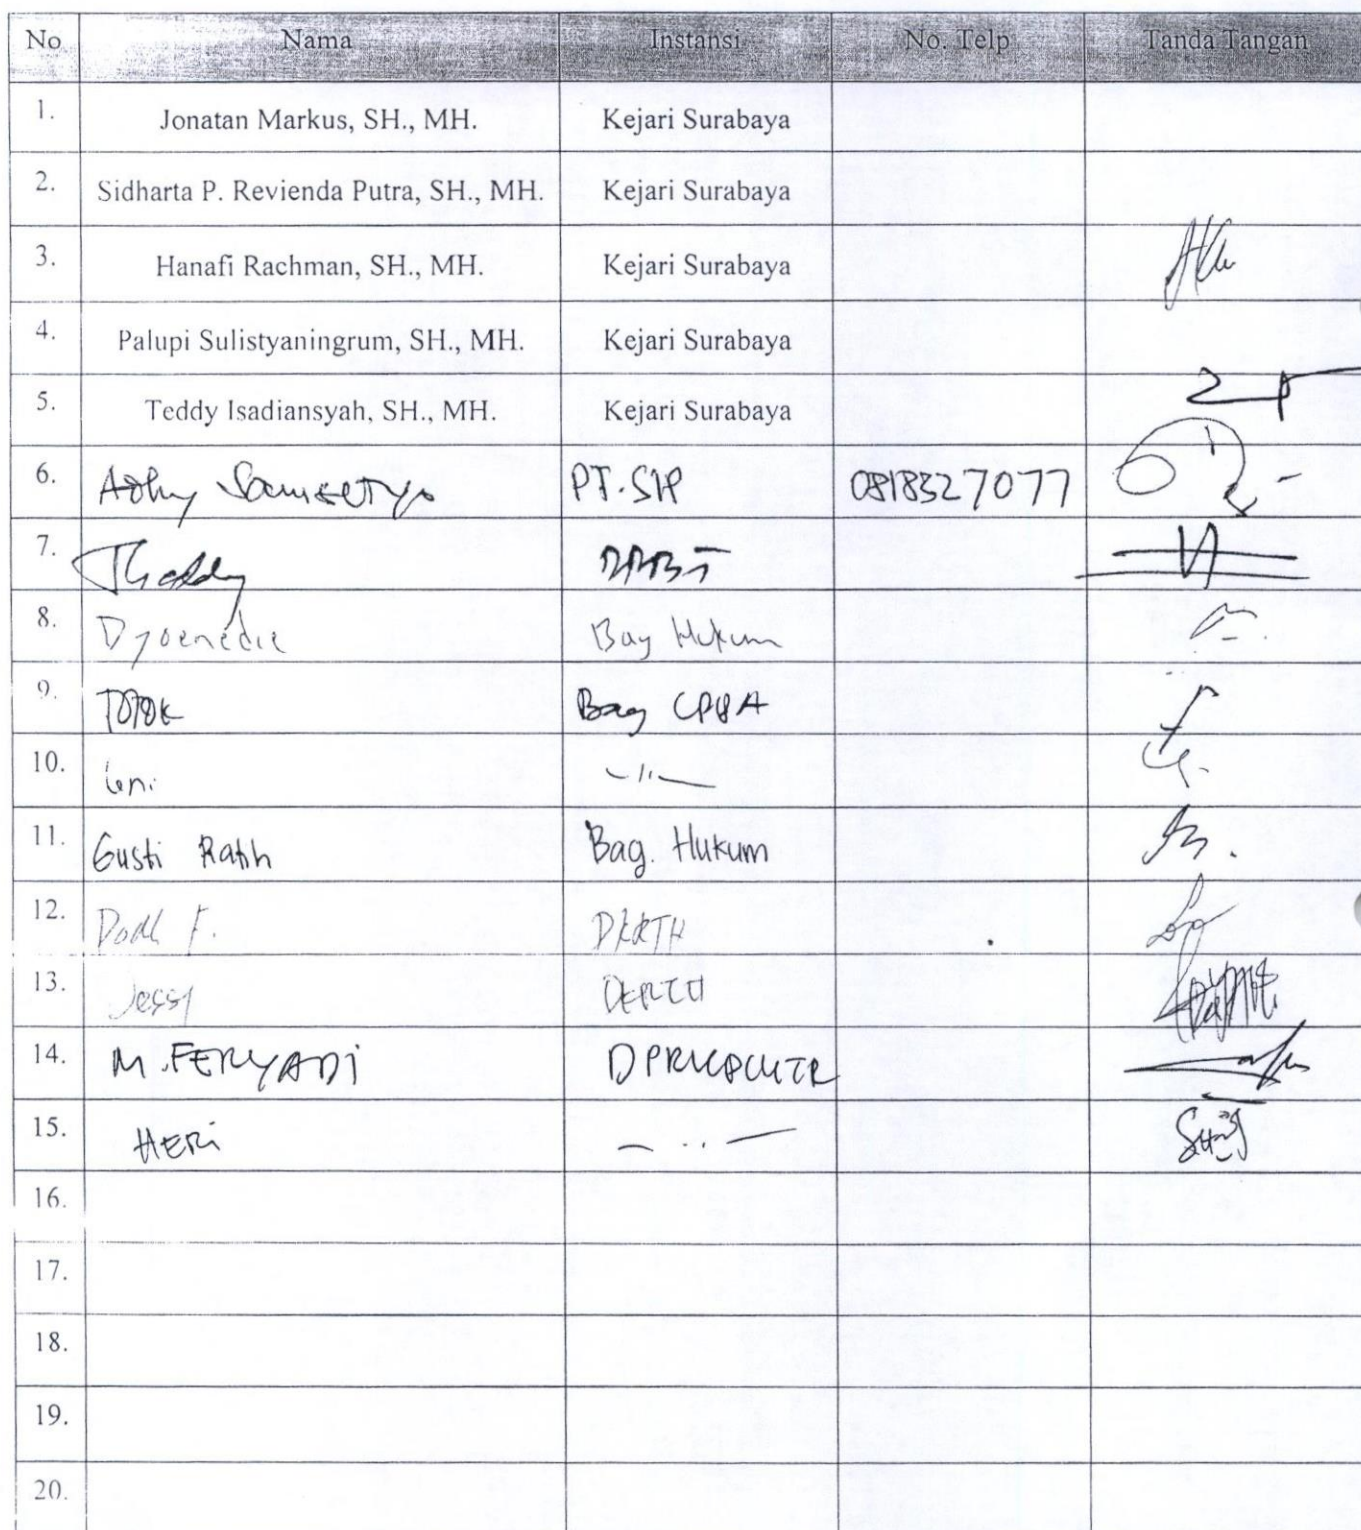 No Nama Instansi No. Telp Tanda Tangan
1. Jonatan Markus, SH., MH. Kejari Surabaya
2. Sidharta P. Revienda Putra, SH., MH. Kejari Surabaya
3. Hanafi Rachman, SH., MH. Kejari Surabaya
4. Palupi Sulistyaningrum, SH., MH. Kejari Surabaya
5. Teddy Isadiansyah, SH., MH. Kejari Surabaya
6. PT. SIP 0818527077
7.
8. Djoenedie Bag Hukum
9. TOTOK Bag
10.
11. Gusti Ratih Bag. Hukum
12. DKRTH
13. Jessy
14. M. FERYADI DPRKPCKTR
15. HERI
16.
17.
18.
19.
20.